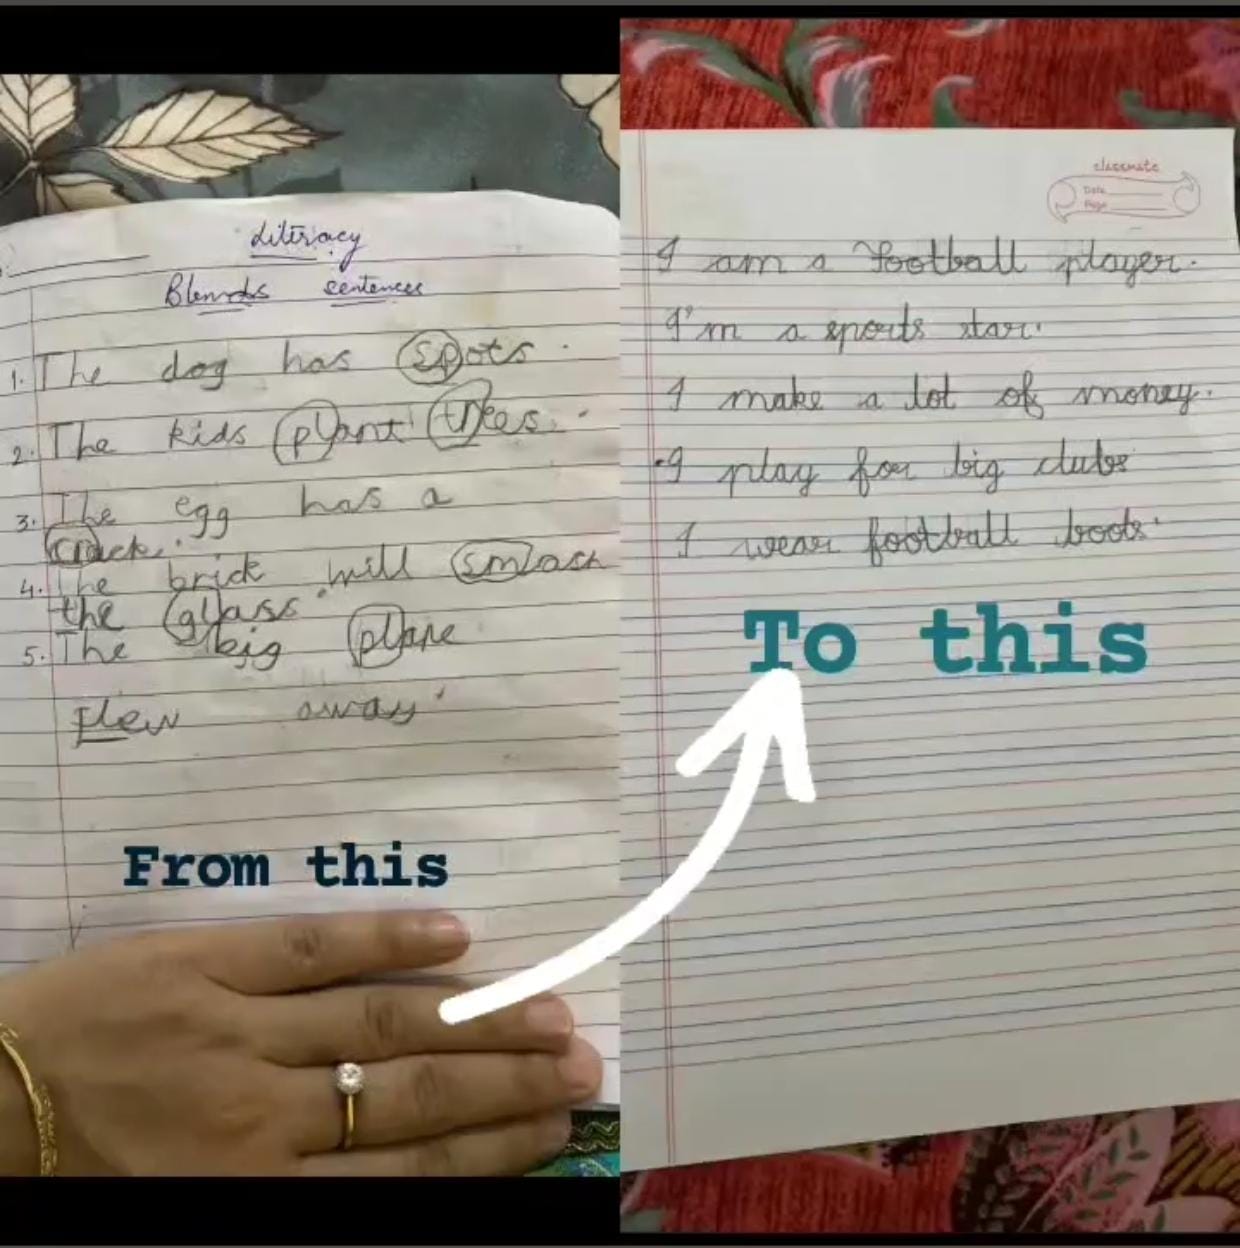 Literacy
Blends sentences
1. The dog has spots.
2. The kids plant trees.
3. The egg has a
crack.
4. The brick will smash
the glass.
5. The big plane
flew away.
From this
classmate
Date
Page
I am a football player.
I'm a sports star.
I make a lot of money.
I play for big clubs
I wear football boots.
To this